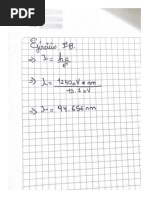 Ejercicio 18.
⇒ λ = hc
E
⇒ λ = 1240 eV * nm
13.1 eV
⇒ λ = 94.656 nm